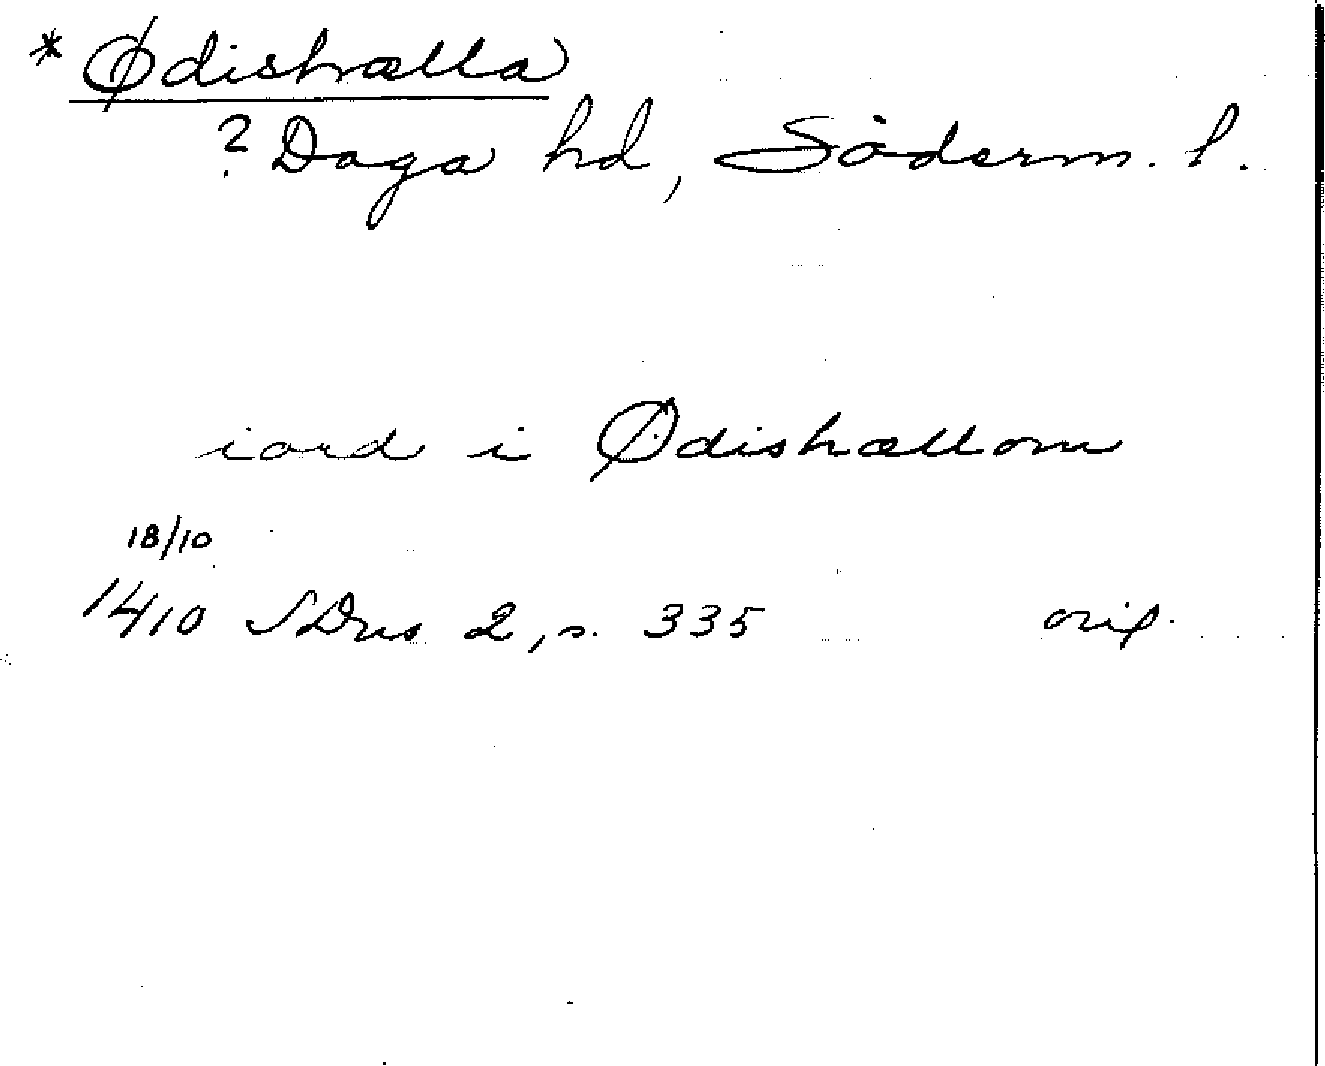 * Ødishælla
? Daga hd, Söderm. l.
iord i Ødishællom
18/10
1410 SDns 2, s. 335 orig.